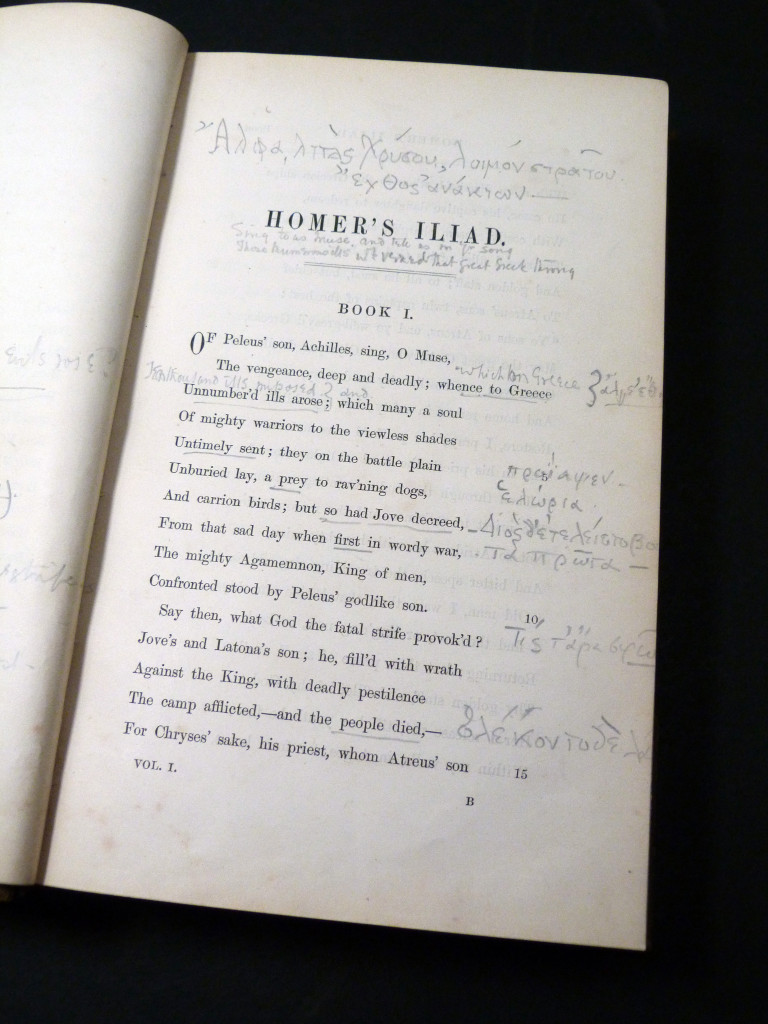 Ἄλφα, λιτὰς Χρύσου, λοιμὸν στρατοῦ
ἔχθος ἀνάκτων
HOMER'S ILIAD.
Sing to us Muse, and tell us in song
that Great Greek throng
BOOK I.
OF Peleus' son, Achilles, sing, O Muse,
The vengeance, deep and deadly; whence to Greece
which on Greece
ills imposed } and
Unnumber'd ills arose; which many a soul
Of mighty warriors to the viewless shades
Untimely sent; they on the battle plain
προΐαψεν
Unburied lay, a prey to rav'ning dogs,
ἑλώρια
And carrion birds; but so had Jove decreed,
From that sad day when first in wordy war,
τὰ πρῶτα
The mighty Agamemnon, King of men,
Confronted stood by Peleus' godlike son. 10
Say then, what God the fatal strife provok'd?
Τίς
Jove's and Latona's son; he, fill'd with wrath
Against the King, with deadly pestilence
The camp afflicted,—and the people died,—
For Chryses' sake, his priest, whom Atreus' son 15
VOL. I.
B